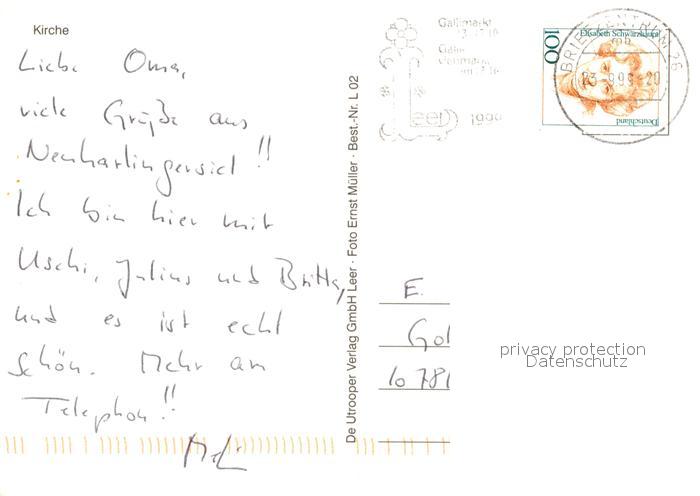 Kirche
Liebe Oma,
viele Grüße aus
Neuharlingersiel!!
Ich bin hier mit
Uschi, Julius und Britta,
und es ist echt
schön. Mehr am
Telephon!!
De Utrooper Verlag GmbH Leer · Foto Ernst Müller · Best.-Nr. L 02
Gallimarkt
Leer
1999
100
Elisabeth Schwarzhaupt
Deutschland
BRIEFZENTRUM 26
E.
Gol
10 781
privacy protection
Datenschutz